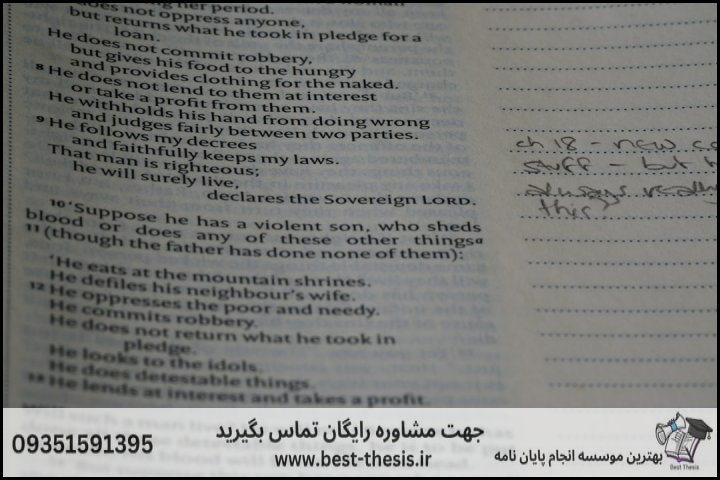 her period.
does not oppress anyone,
but returns what he took in pledge for a
loan.
He does not commit robbery,
but gives his food to the hungry
and provides clothing for the naked.
8 He does not lend to them at interest
or take a profit from them.
He withholds his hand from doing wrong
and judges fairly between two parties.
9 He follows my decrees
and faithfully keeps my laws.
That man is righteous;
he will surely live,
declares the Sovereign LORD.
10 ‘Suppose he has a violent son, who sheds
blood or does any of these other thingsa
11 (though the father has done none of them):
‘He eats at the mountain shrines.
He defiles his neighbour’s wife.
12 He oppresses the poor and needy.
He commits robbery.
He does not return what he took in
pledge.
He looks to the idols.
He does detestable things.
13 He lends at interest and takes a profit.
ch 18 – new
stuff – but
always really
this?
09351591395
جهت مشاوره رایگان تماس بگیرید
www.best-thesis.ir
بهترین موسسه انجام پایان نامه
Best Thesis